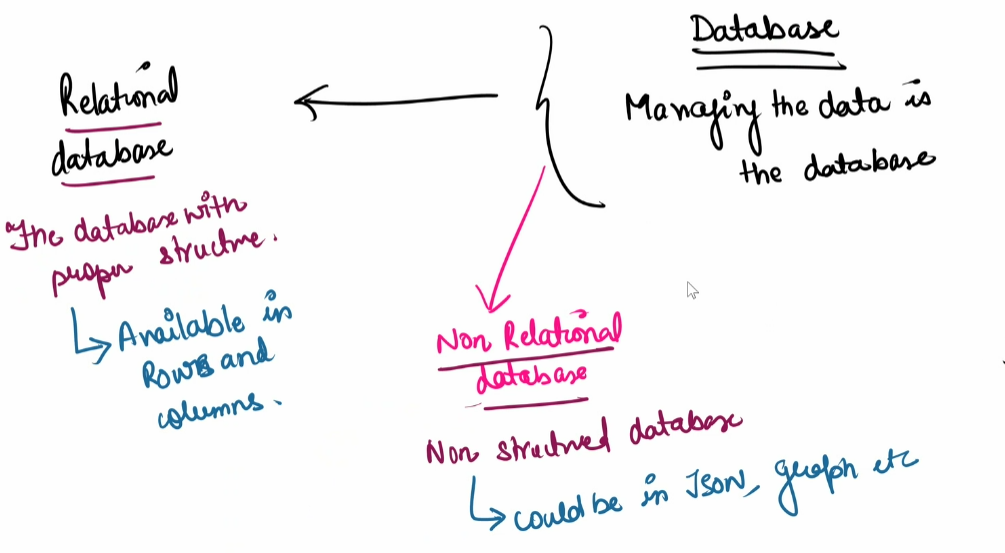 Database
Managing the data is
the database
Relational
database
The database with
proper structure.
Available in
Rows and
columns.
Non Relational
database
Non structured database
could be in Json, graph etc